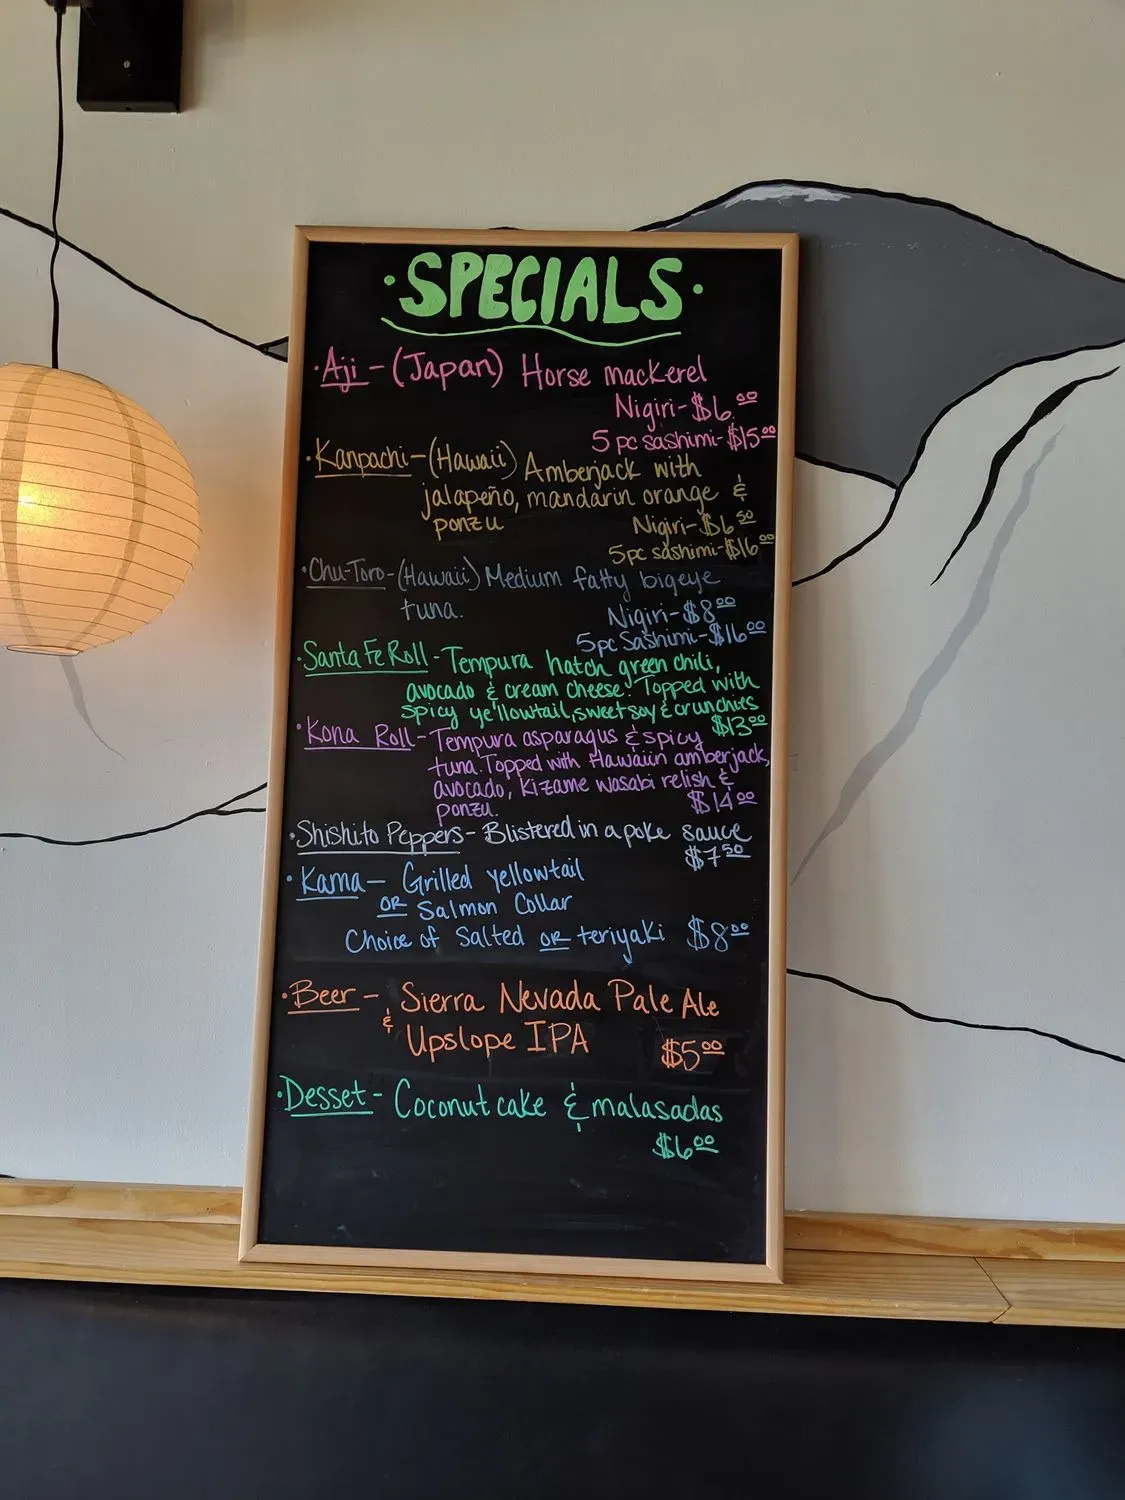 ·SPECIALS·
·Aji-(Japan) Horse mackerel
Nigiri-$6.00
5 pc sashimi-$15.00
·Kanpachi-(Hawaii) Amberjack with
jalapeño, mandarin orange &
ponzu
Nigiri-$6.50
5pc sashimi-$16.00
·Chu-Toro-(Hawaii) Medium fatty bigeye
tuna.
Nigiri-$8.00
5pc Sashimi-$16.00
·Santa Fe Roll-Tempura hatch green chili,
avocado & cream cheese. Topped with
spicy yellowtail, sweet soy & crunchies
$13.00
·Kona Roll-Tempura asparagus & spicy
tuna. Topped with Hawaiin amberjack,
avocado, Kizame wasabi relish &
ponzu.
$14.00
·Shishito Peppers-Blistered in a poke sauce
$7.50
·Kama- Grilled yellowtail
OR Salmon Collar
Choice of Salted OR teriyaki $8.00
·Beer- Sierra Nevada Pale Ale
& Upslope IPA $5.00
·Desset- Coconut cake & malasadas
$6.00